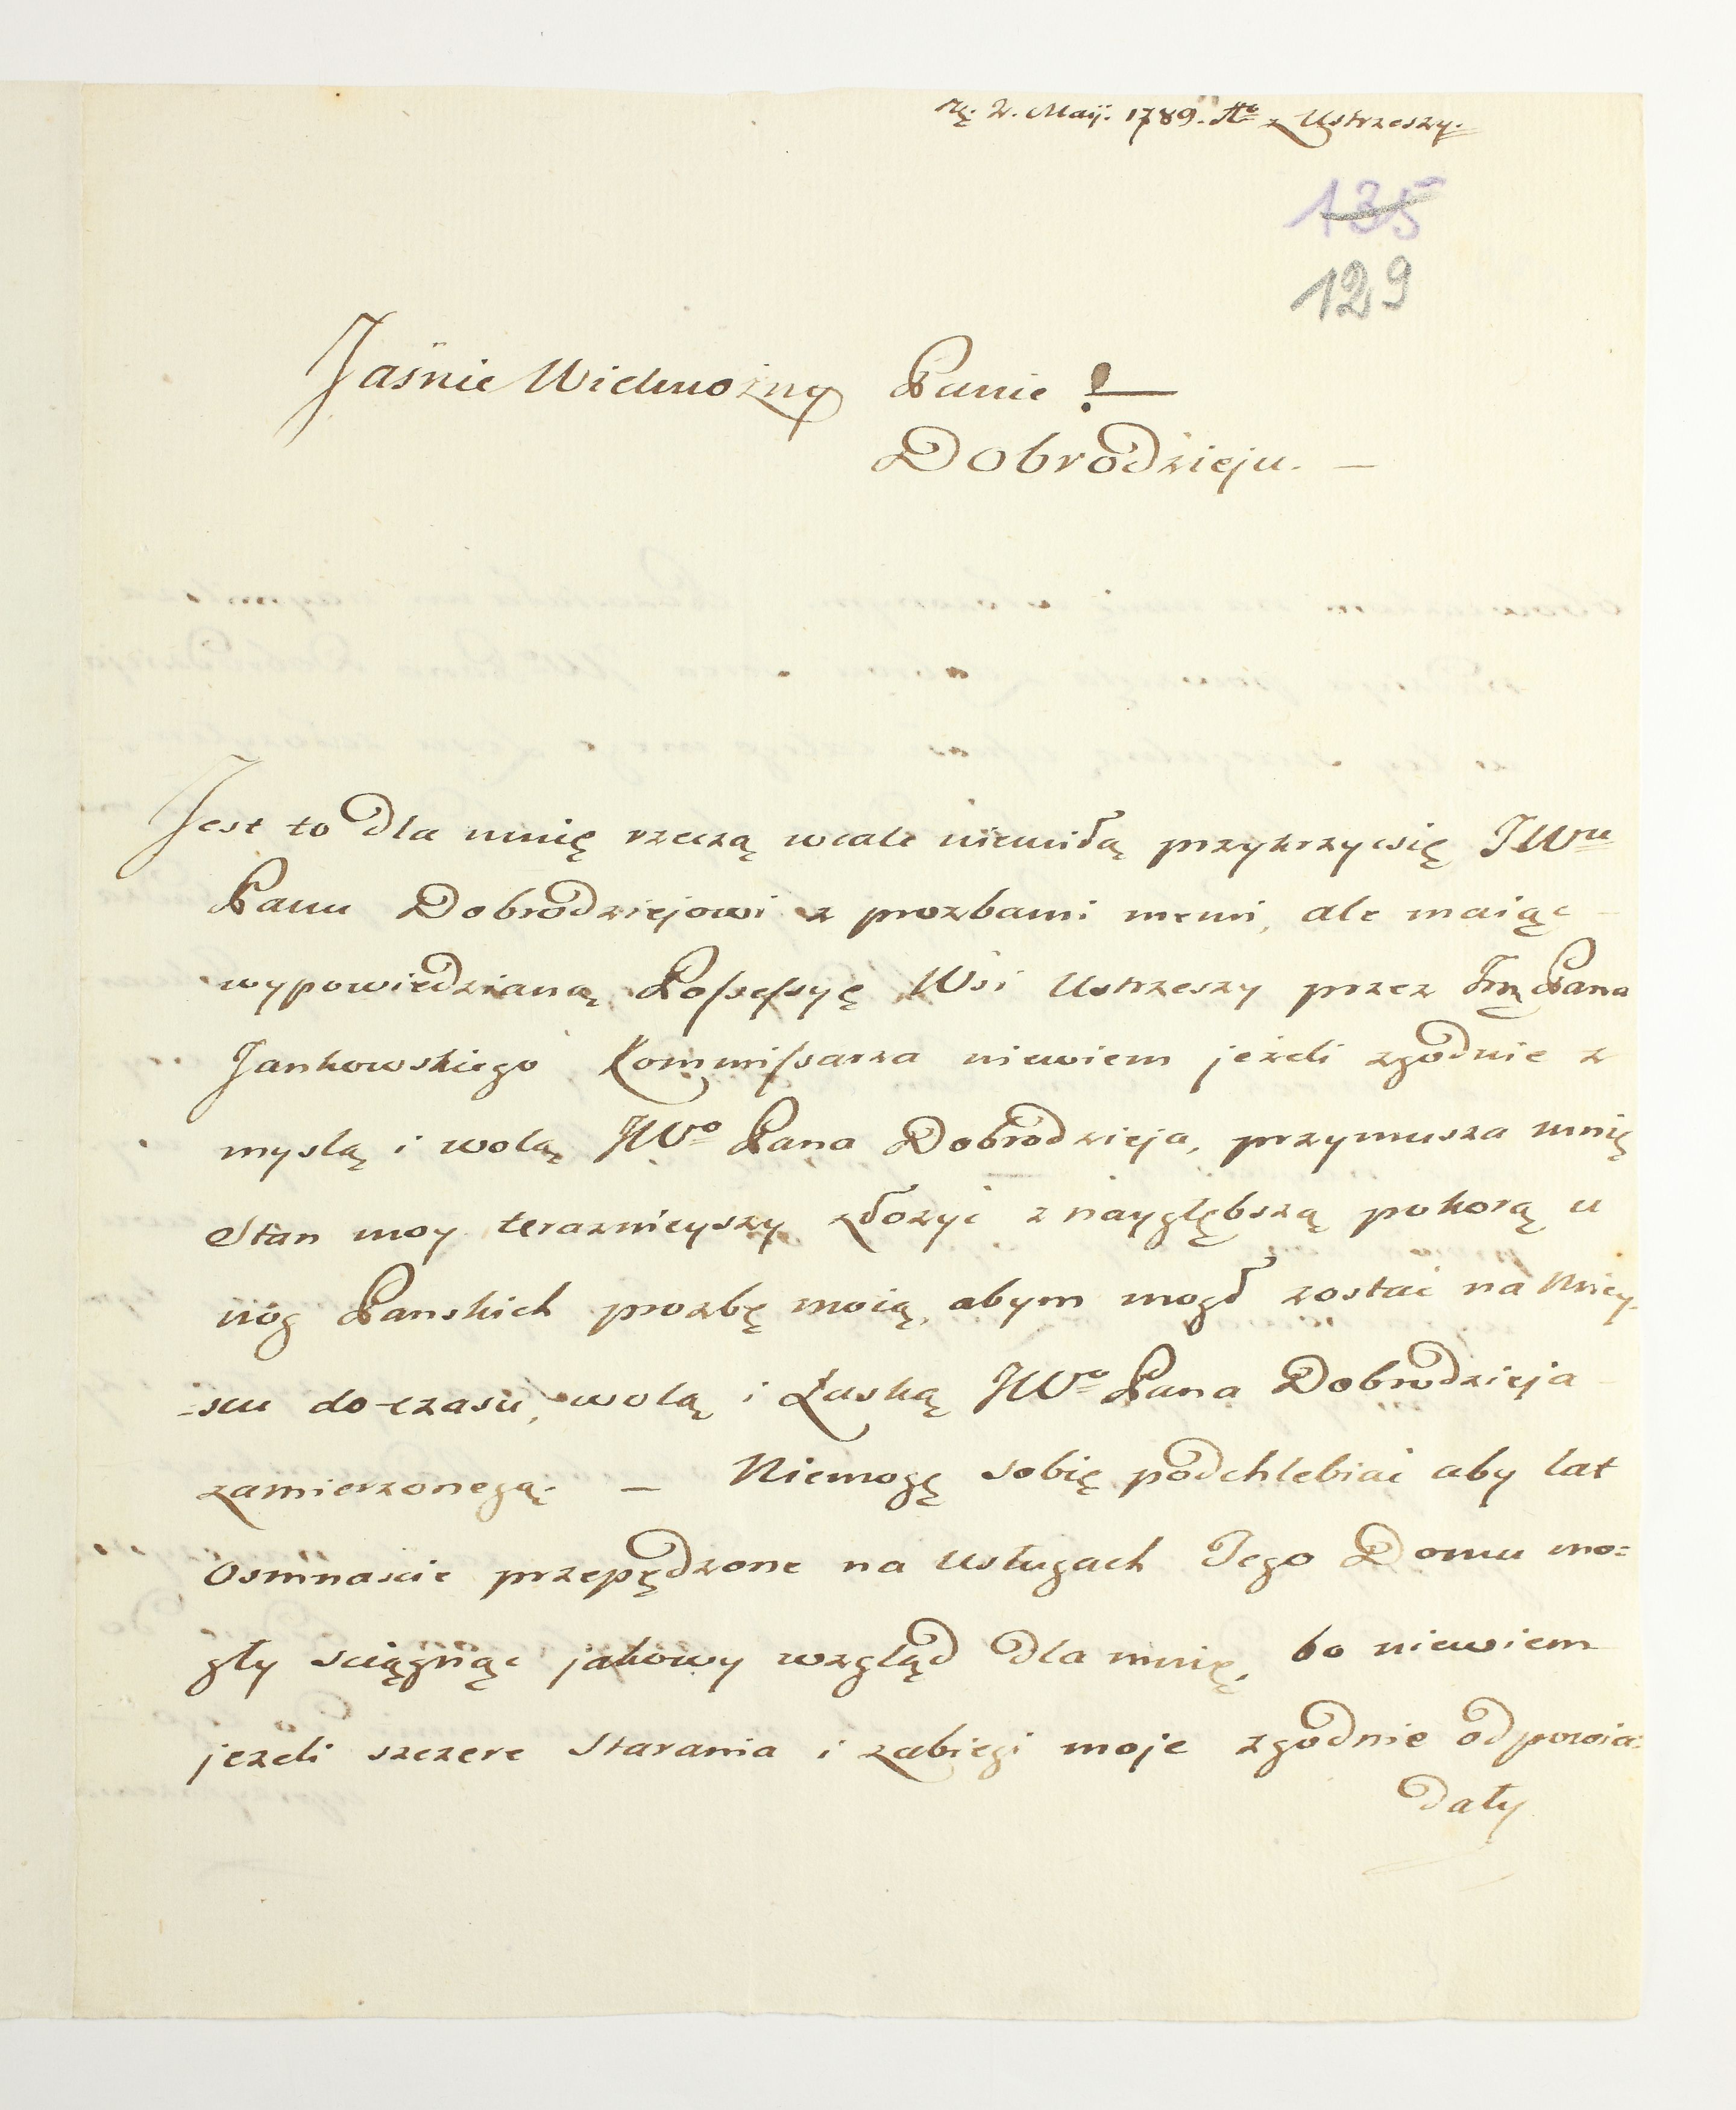 2. Maij. 1789. z Ustrzeszy.
135
129
Jaśnie Wielmożny Panie!
Dobrodzieju. —
Jest to dla mnię rzeczą wcale niemiłą przykrzycsię JWu
Panu Dobrodziejowi z prozbami memi, ale maiąc
wypowiedzianą Possessyę Wsi Ustrzeszy przez Jmę Pana
Jankowskiego Kommissarza niewiem jeżeli zgodnie z
myslą i wolą JWo Pana Dobrodzieja, przymusza mnię
Stan moy teraznieyszy złożyć z nayglębszą pokorą u
nóg Panskich prozbę moią, abym mogł zostać na Miey-
-scu do czasu, wolą i Łaską JWo Pana Dobrodzieja
zamierzonegą. — Niemogę sobię podchlebiać aby lat
Osmnascie przepędzone na usługach Jego Domu mo=
gły sciągnąc jakowy wzgląd dla mnię, bo niewiem
jezeli szczere Starania i zabiegi moje zgodnie odpowia=
dały